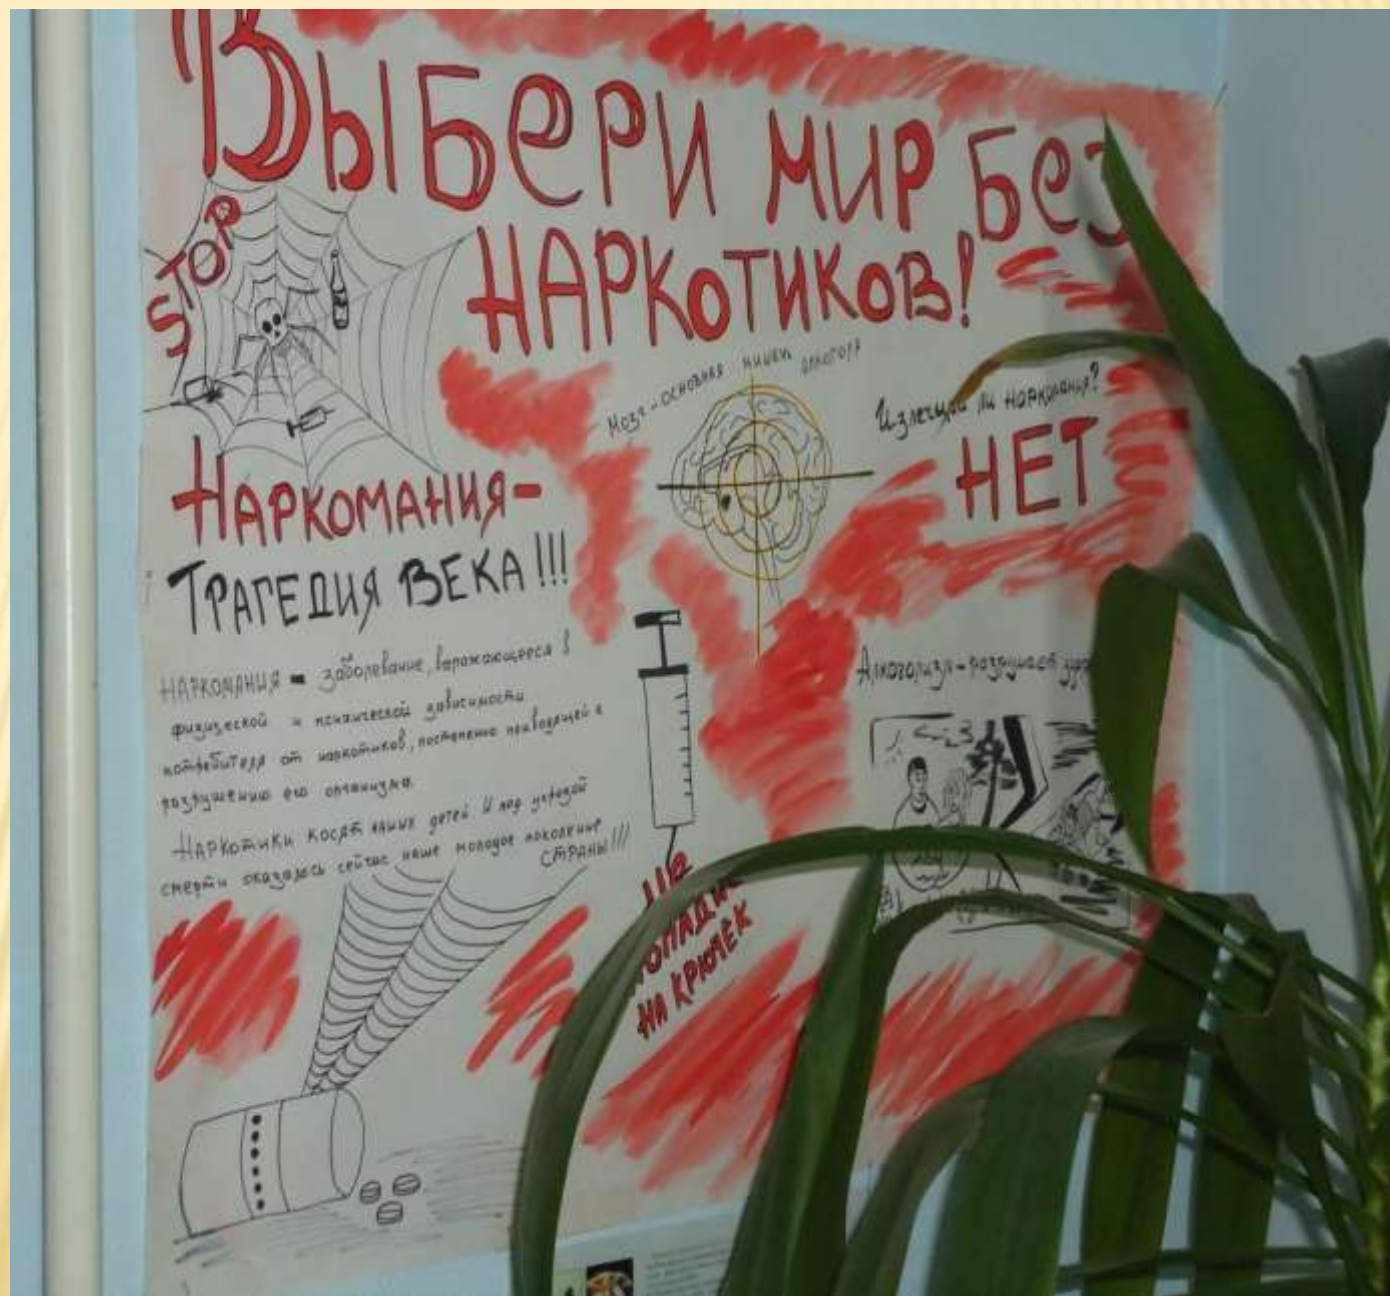 Выбери мир без
наркотиков!
STOP
Мозг - основная мишень алкоголя
Излечима ли наркомания?
НЕТ
Наркомания-
Трагедия века!!!
Наркомания - заболевание, выражающееся в
физической и психической зависимости
потребителя от наркотиков, постепенно приводящей к
разрушению его организма.
Наркотики косят наших детей. И под угрозой
смерти оказалось сейчас наше молодое поколение
страны!!!
Алкоголизм - разрушает
Не
попадись
на крючёк